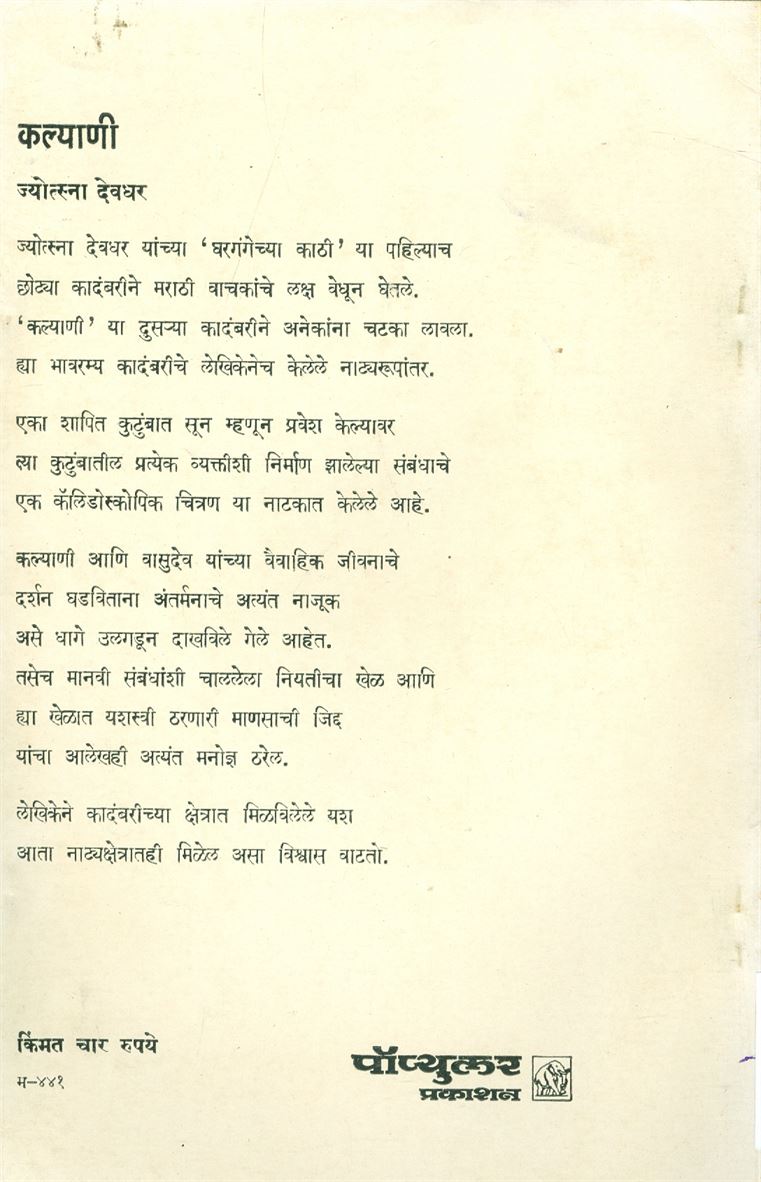 कल्याणी
ज्योत्स्ना देवधर
ज्योत्स्ना देवधर यांच्या ‘घरगंगेच्या काठी’ या पहिल्याच
छोट्या कादंबरीने मराठी वाचकांचे लक्ष वेधून घेतले.
‘कल्याणी’ या दुसऱ्या कादंबरीने अनेकांना चटका लावला.
ह्या भावरम्य कादंबरीचे लेखिकेनेच केलेले नाट्यरूपांतर.
एका शापित कुटुंबात सून म्हणून प्रवेश केल्यावर
त्या कुटुंबातील प्रत्येक व्यक्तीशी निर्माण झालेल्या संबंधाचे
एक कॅलिडोस्कोपिक चित्रण या नाटकात केलेले आहे.
कल्याणी आणि वासुदेव यांच्या वैवाहिक जीवनाचे
दर्शन घडविताना अंतर्मनाचे अत्यंत नाजूक
असे धागे उलगडून दाखविले गेले आहेत.
तसेच मानवी संबंधांशी चाललेला नियतीचा खेळ आणि
ह्या खेळात यशस्वी ठरणारी माणसाची जिद्द
यांचा आलेखही अत्यंत मनोज्ञ ठरेल.
लेखिकेने कादंबरीच्या क्षेत्रात मिळविलेले यश
आता नाट्यक्षेत्रातही मिळेल असा विश्वास वाटतो.
किंमत चार रुपये
म-४४१
पॉप्युलर
प्रकाशन